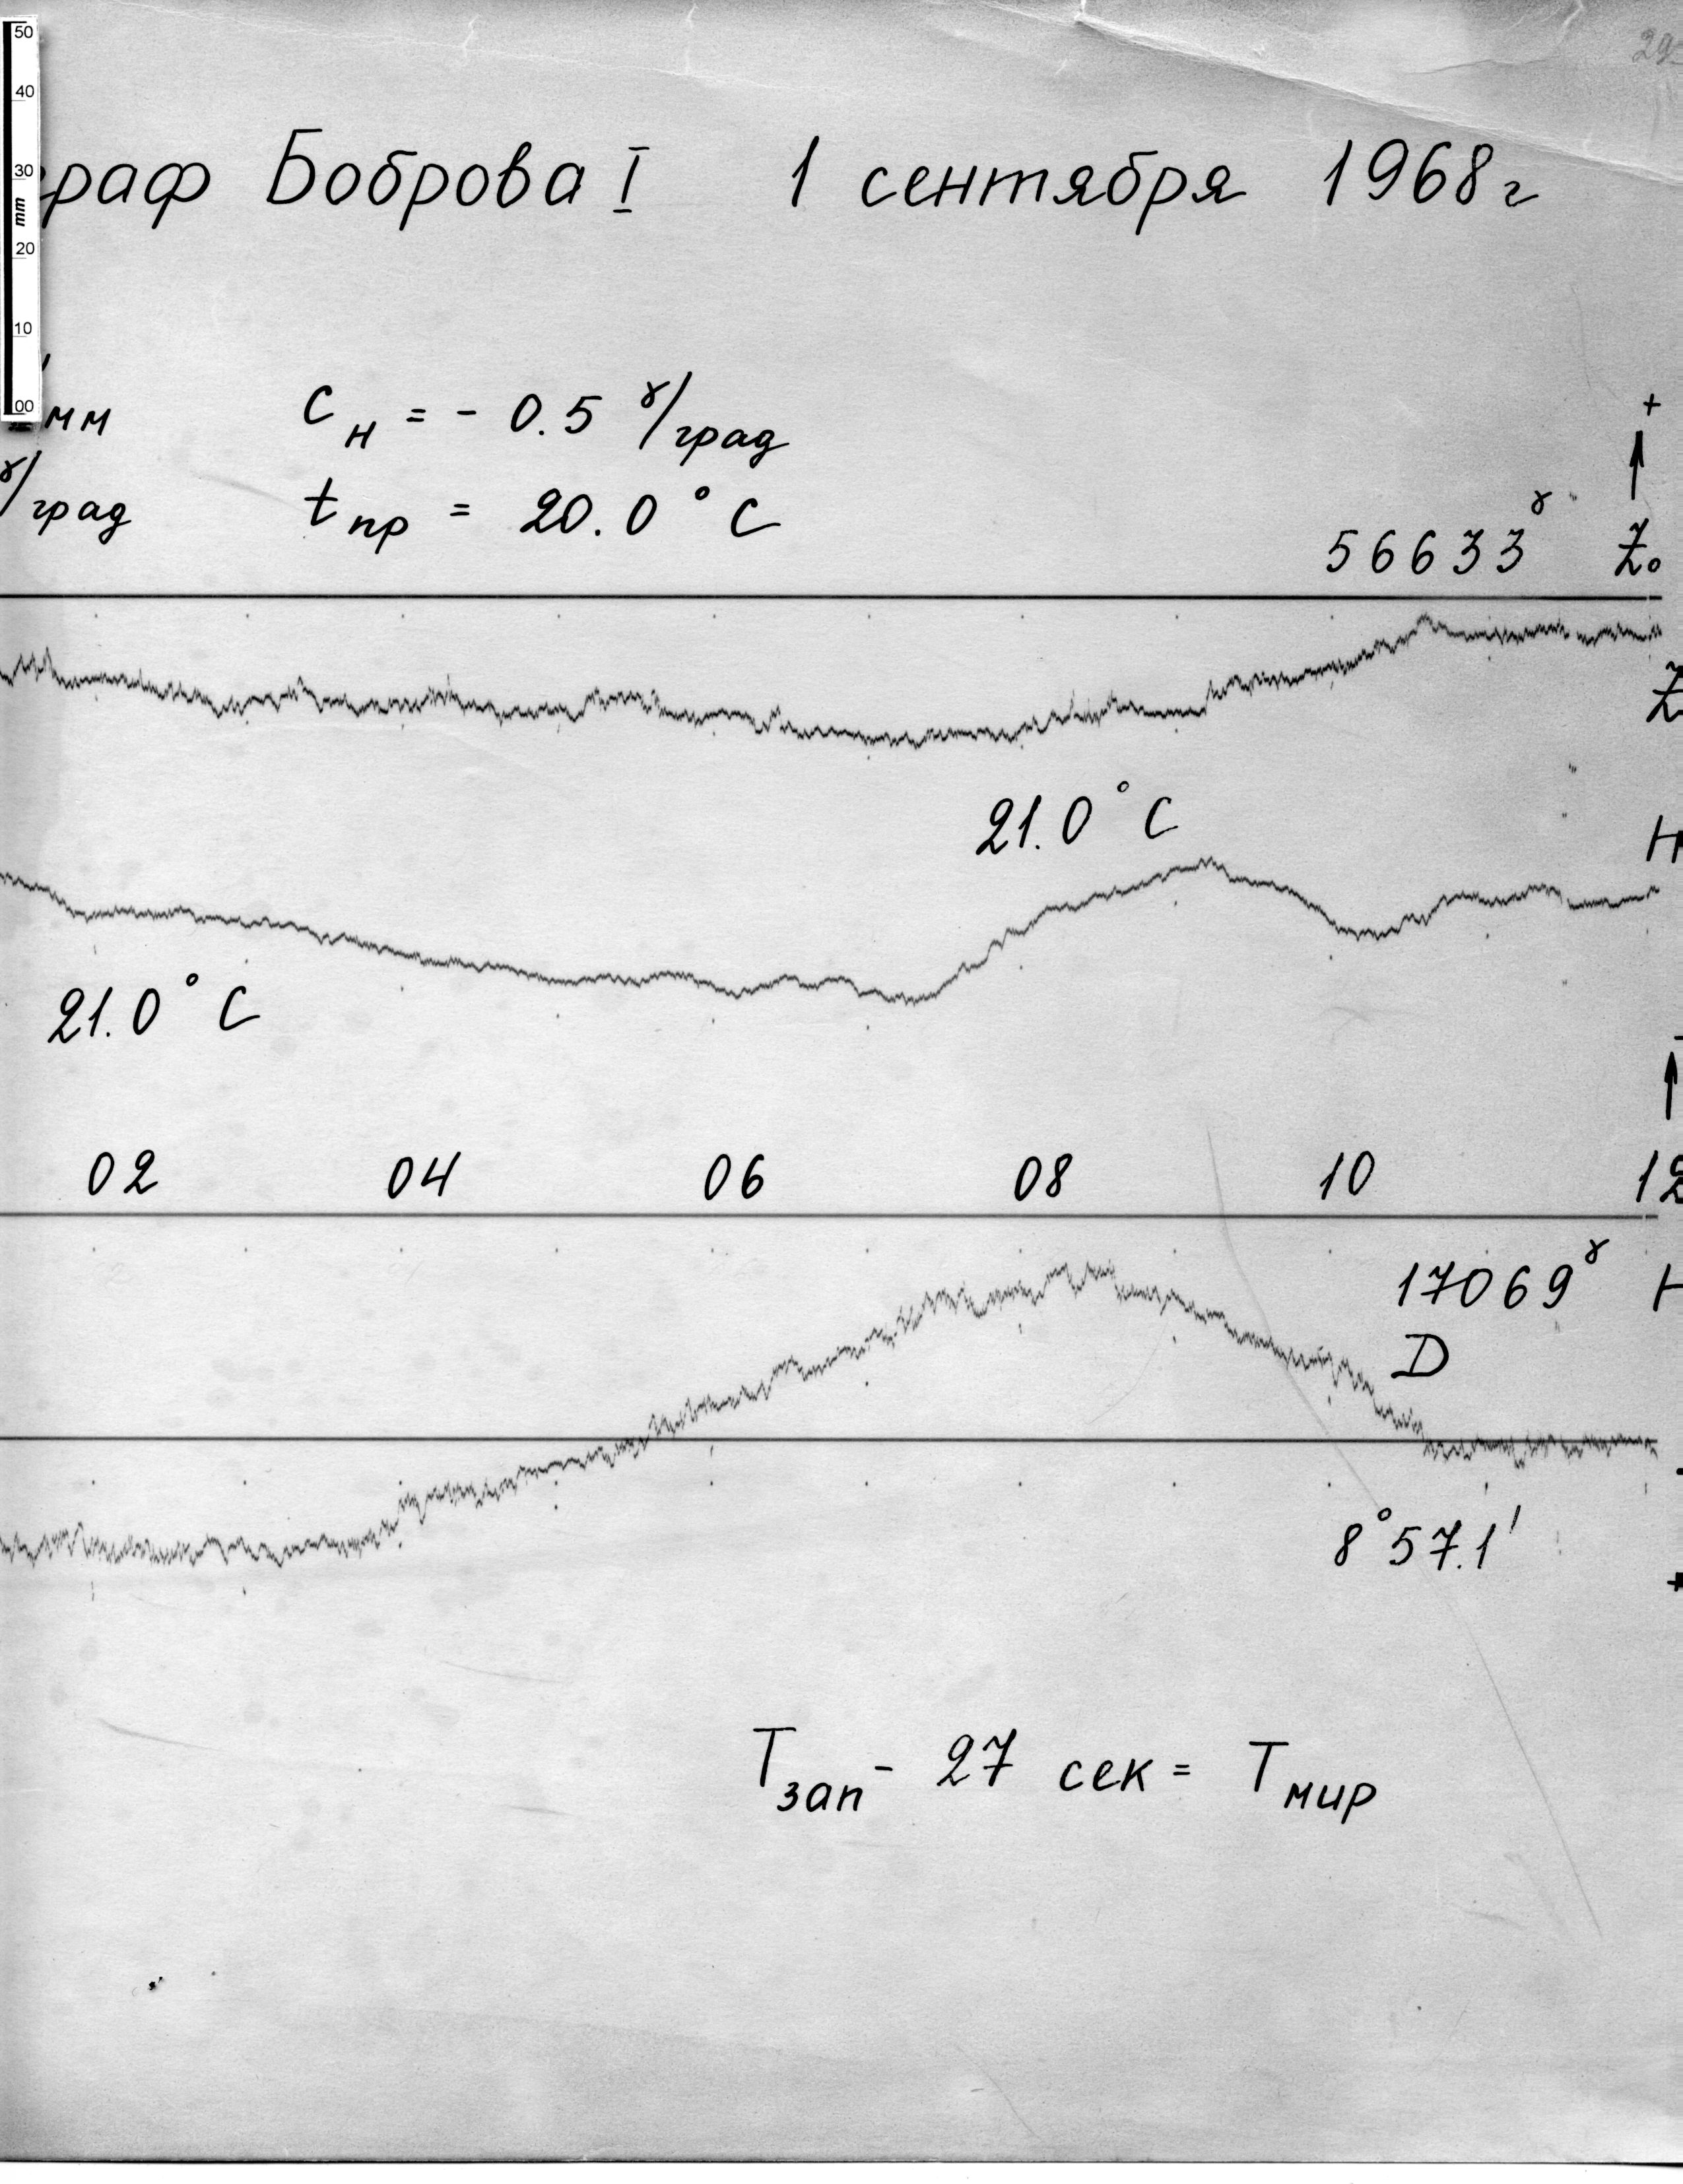 50
40
30
mm
20
10
00
29
граф Боброва I 1 сентября 1968 г
мм C н = - 0.5 γ/град
γ/град t пр = 20.0 ° C
+
56633 γ Z₀
Z
21.0 ° C
H
21.0 ° C
-
02 04 06 08 10 12
17069 γ H
D
8° 57.1'
+
T зап - 27 сек = T мир